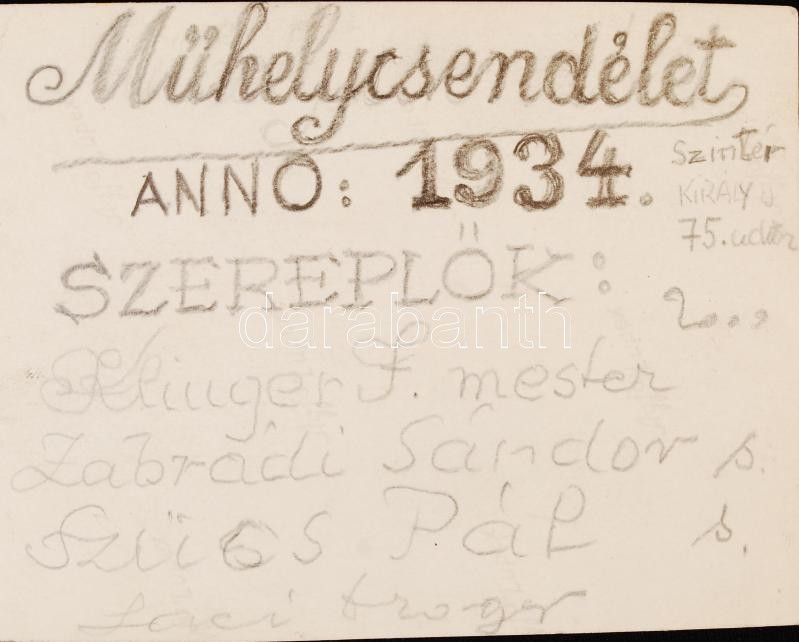 Műhelycsendélet
ANNO: 1934.
Színtér
KIRÁLY U
75. udvar
SZEREPLŐK:
2...
darabanth
Klinger F. mester
Zabrádi Sándor s.
Szűcs Pál s.
Laci troger